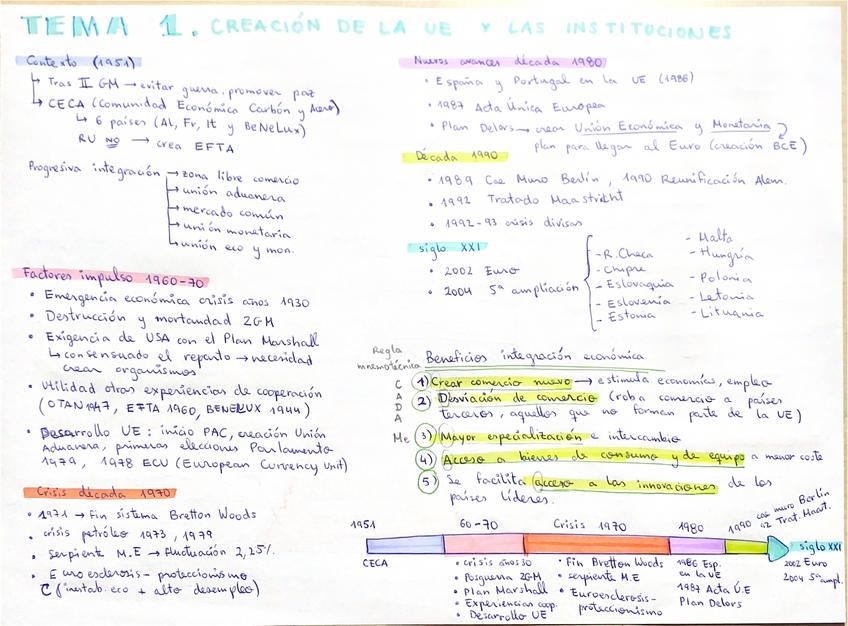 TEMA 1. CREACIÓN DE LA UE Y LAS INSTITUCIONES
Contexto (1951)
Tras II GM → evitar guerra, promover paz
CECA (Comunidad Económica Carbón y Acero)
6 países (Al, Fr, It y BeNeLux)
RU NO → crea EFTA
Progresiva integración → zona libre comercio
→ unión aduanera
→ mercado común
→ unión monetaria
→ unión eco y mon.
Factores impulso 1960-70
• Emergencia económica crisis años 1930
• Destrucción y mortandad 2GM
• Exigencia de USA con el Plan Marshall
↳ consensuado el reparto → necesidad
crear organismos
• Utilidad otras experiencias de cooperación
(OTAN 1947, EFTA 1960, BENELUX 1944)
• Desarrollo UE: inicio PAC, creación Unión
Aduanera, primeras elecciones Parlamento
1979, 1978 ECU (European Currency Unit)
Crisis década 1970
• 1971 → Fin sistema Bretton Woods
• crisis petróleo 1973, 1979
• Serpiente M.E → fluctuación 2,25%
• Euroesclerosis - proteccionismo
(inestab. eco + alto desempleo)
Nuevos avances década 1980
• España y Portugal en la UE (1986)
• 1987 Acta Única Europea
• Plan Delors → crear Unión Económica y Monetaria
plan para llegar al Euro (creación BCE)
Década 1990
• 1989 Cae Muro Berlín, 1990 Reunificación Alem.
• 1992 Tratado Maastricht
• 1992-93 crisis divisas
siglo XXI
• 2002 Euro
• 2004 5ª ampliación
- R. Checa
- Chipre
- Eslovaquia
- Eslovenia
- Estonia
- Malta
- Hungría
- Polonia
- Letonia
- Lituania
Regla
mnemotécnica
C
A
D
A
Me
Beneficios integración económica
1) Crear comercio nuevo → estimula economías, empleo
2) Desviación de comercio (roba comercio a países
terceros, aquellos que no forman parte de la UE)
3) Mayor especialización e intercambio
4) Acceso a bienes de consumo y de equipo a menor coste
5) Se facilita acceso a las innovaciones de los
países líderes.
1951
60-70
Crisis 1970
1980
1990
cae muro Berlín
92 Trat. Maast.
siglo XXI
CECA
• crisis años 30
• Posguerra 2GM
• Plan Marshall
• Experiencias coop.
• Desarrollo UE
• Fin Bretton Woods
• serpiente M.E
• Euroesclerosis-
proteccionismo
1986 Esp.
en la UE
1987 Acta U.E
Plan Delors
2002 Euro
2004 5ª ampl.